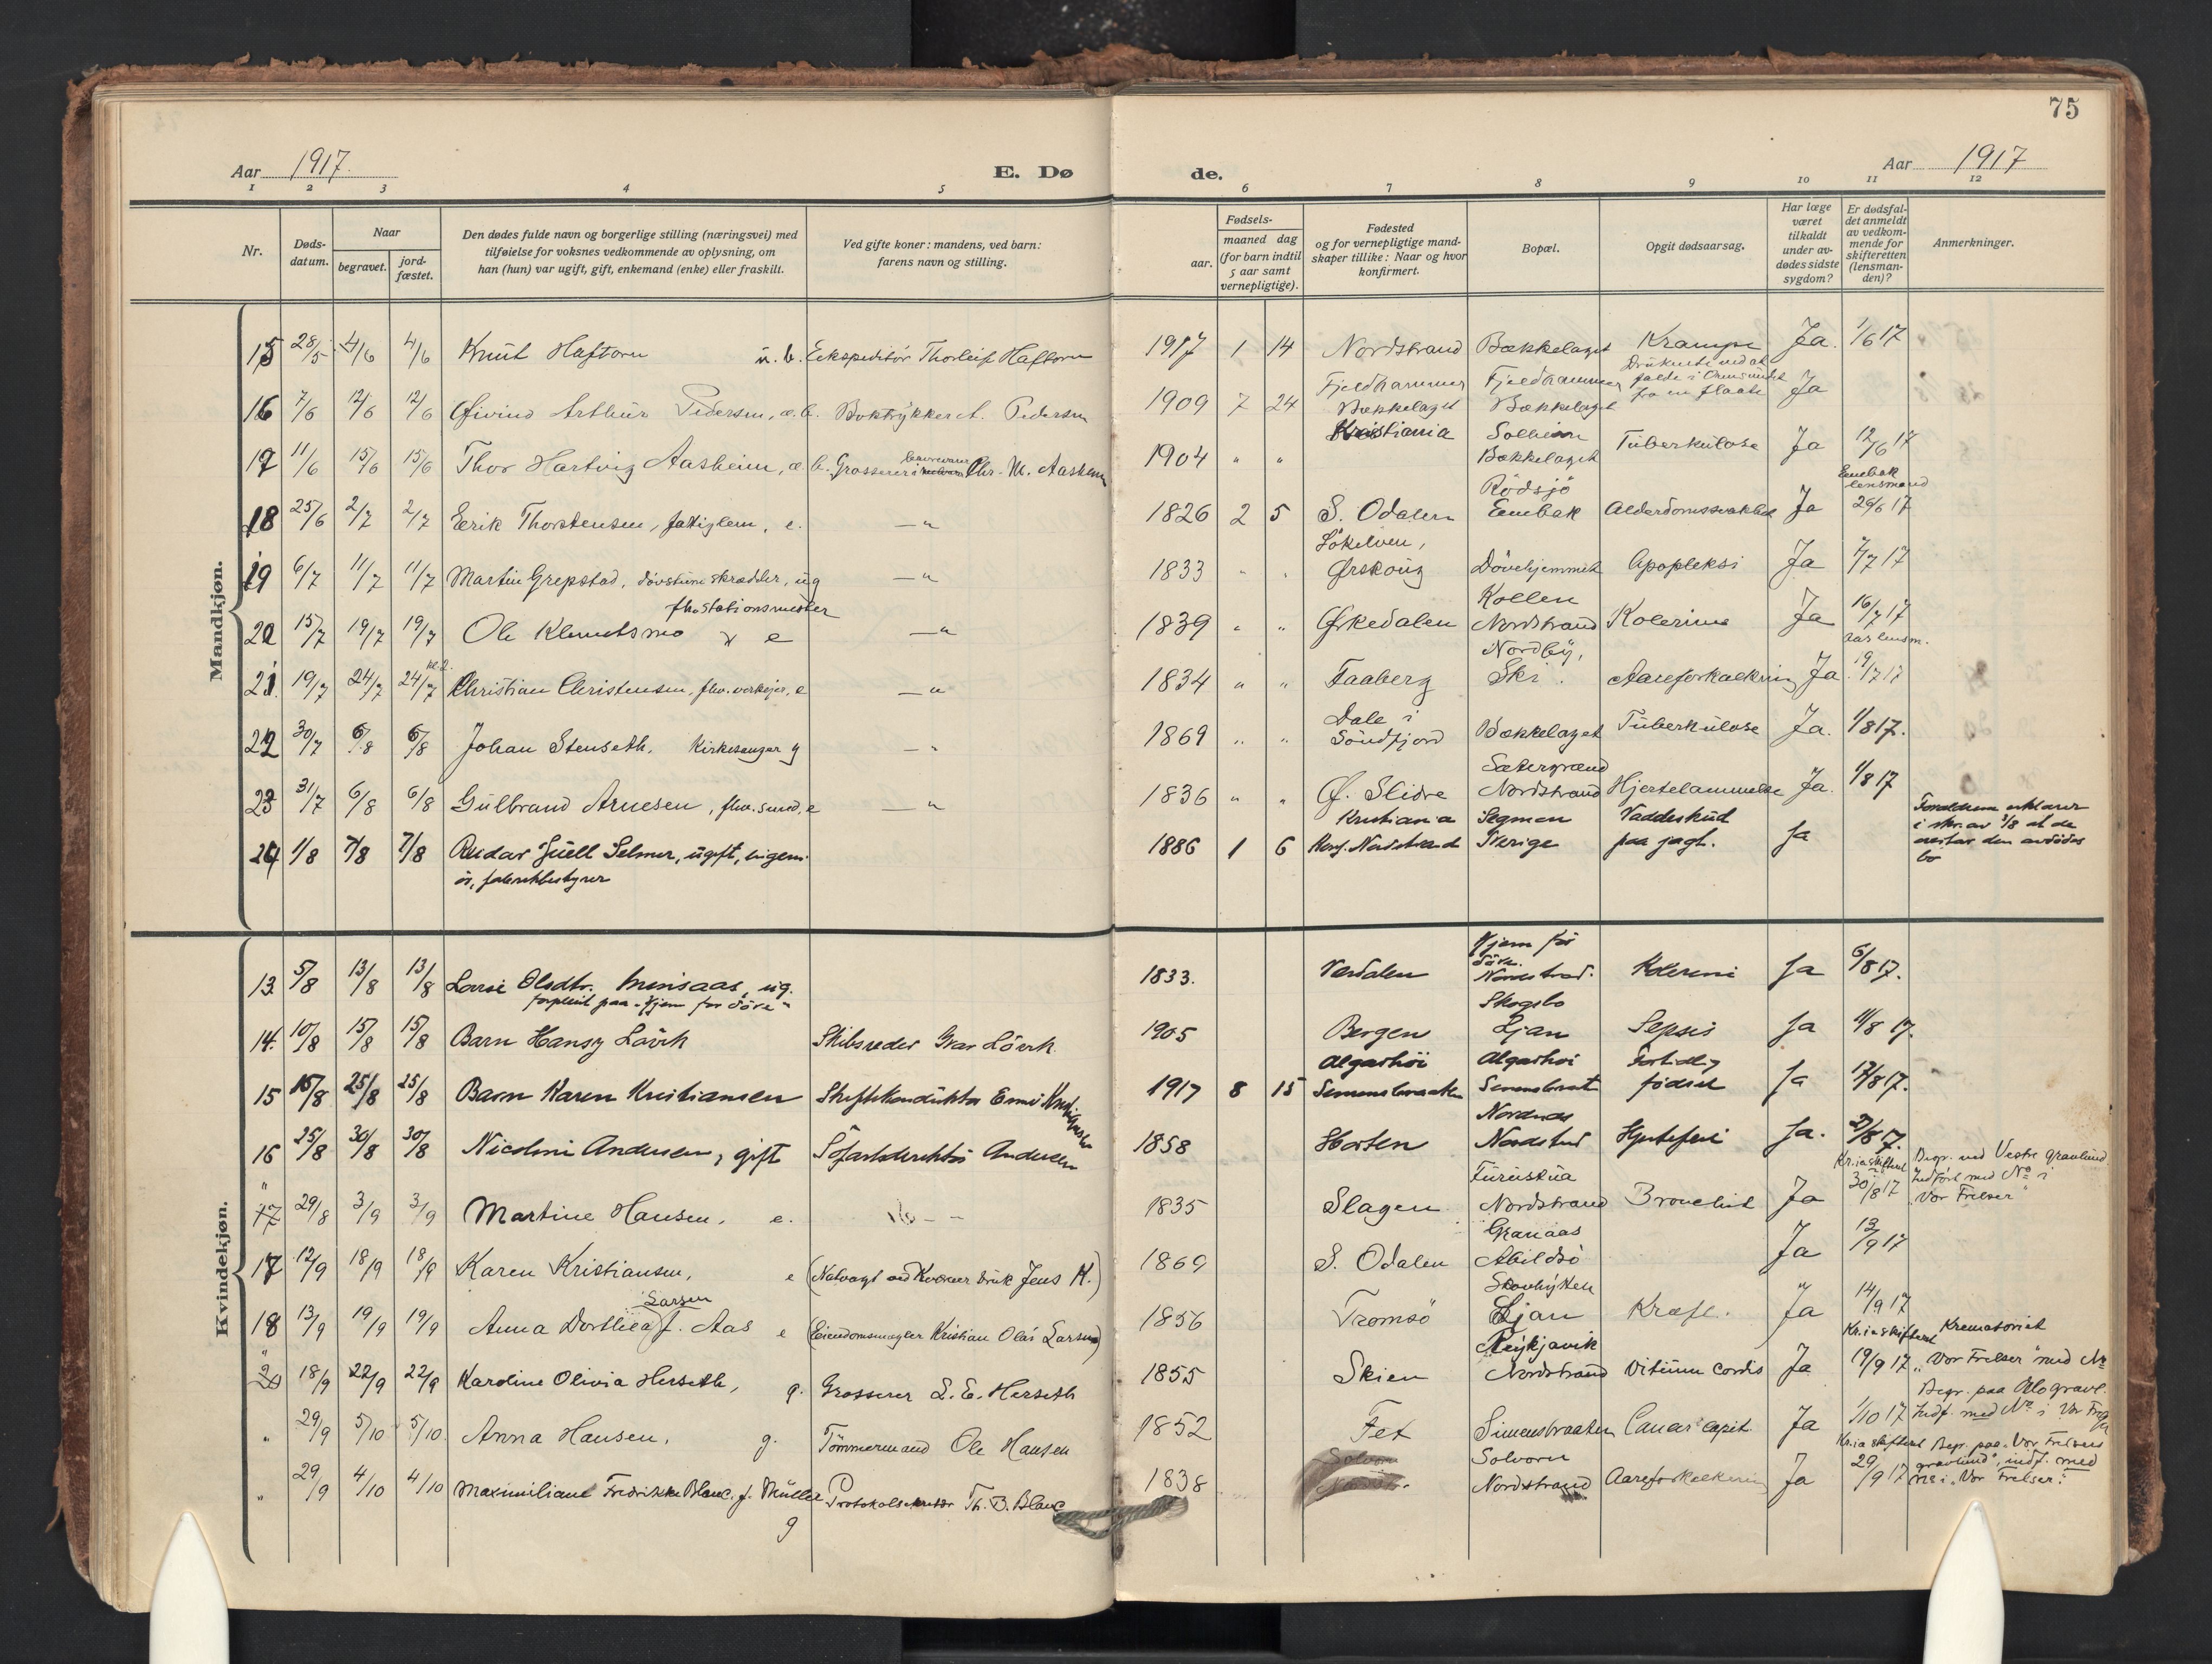 75
Aar 1917.
E. Dø
de.
Aar 1917
1 2 3 4 5 6 7 8 9 10 11 12
Nr.
Døds-
datum.
Naar
begravet.
jord-
fæstet.
Den dødes fulde navn og borgerlige stilling (næringsvei) med
tilføielse for voksnes vedkommende av oplysning, om
han (hun) var ugift, gift, enkemand (enke) eller fraskilt.
Ved gifte koner: mandens, ved barn:
farens navn og stilling.
Fødsels-
aar.
maaned dag
(for barn indtil
5 aar samt
vernepligtige).
Fødested
og for vernepligtige mand-
skaper tillike: Naar og hvor
konfirmert.
Bopæl.
Opgit dødsaarsag.
Har læge
været
tilkaldt
under av-
dødes sidste
sygdom?
Er dødsfal-
det anmeldt
av vedkom-
mende for
skifteretten
(lensman-
den)?
Anmerkninger.
Mandkjøn.
15 28/5 4/6 4/6 Knut Haftorn u. b. Ekspeditør Thorleif Haftorn 1917 1 14 Nordstrand Bækkelaget Krampe Ja. 1/6 17
16 7/6 12/6 12/6 Øivind Arthur Pedersen, æ. b. Boktrykker A. Pedersen 1909 7 24 Fjeldhammer Bækkelaget Fjeldhammer Bækkelaget Druknet ved at falde i Ormsundet fra en flaate Ja
17 11/6 15/6 15/6 Thor Hartvig Aasheim, æ. b. Grosserer i Chr. M. Aasheim 1904 " " Kristiania Solheim Bækkelaget Tuberkulose Ja 12/6 17
18 25/6 2/7 2/7 Eerik Thorstensen, fattiglem, e. — " 1826 2 5 S. Odalen Rödsjö Enebak Alderdomssvakhet Ja Enebak lensmand 26/6 17
19 6/7 11/7 11/7 Martin Grepstad, døvstum skrædder, ug — " 1833 " " Ørskoug Døvehjemmet Apopleksi Ja 7/7 17
20 15/7 19/7 19/7 Ole Klemetsmo fhv. stationsmester e — " 1839 " " Ørkedalen Kollen Nordstrand Kolerine Ja 16/7 17
21 19/7 24/7 24/7 kl. 2. Christian Christensen, fhv. verkeier, e — " 1834 " " Faaberg Nordby, Ski. Aareforkalkning Ja. Aas lensm. 19/7 17
22 30/7 6/8 6/8 Johan Stenseth. Kirkesanger g — " 1869 " " Dale i Söndfjord Bækkelaget Tuberkulose Ja. 1/8 17.
23 31/7 6/8 6/8 Gulbrand Arnesen, fhv. smed, e — " 1836 " " Ø. Slidre Sætergrænd Nordstrand Hjertelammelse Ja. 1/8 17
24 1/8 7/8 7/8 Reidar Juell Selmer, ugift, ingeni-
ör, fabrikbestyrer 1886 1 6 Kristiania Konf. Nordstrand Segmon Sverige Vaddeskud paa jagt. Ja Forældrene erklærer i skr. av 3/8 at de overtar den avdödes bo
Kvindekjøn.
13. 5/8 13/8 13/8 Olsdtr. ug.
forpleiet paa "Hjem for döve" 1833. Verdalen Hjem for döve. Nordstrand. Kolerine Ja 6/8 17.
14. 10/8 15/8 15/8 Barn Hansy Lövik Skibsreder Ivar Lövik. 1905 Bergen Skogsbo Ljan Sepsis Ja 11/8 17.
15 15/8 25/8 25/8 Barn Karen Kristiansen Kristiansen 1917 8 15 Algarhöi Simensbraaten Algarhöi Simensbraat For tidlig födsel Ja 17/8 17.
16 25/8 30/8 30/8 Nicoline Andersen, gift Andersen 1858 Horten Nordnes Nordstrand Hjertefeil Ja. 27/8 17.
" 17 29/8 3/9 3/9 Martine Hansen, e. 1835 Slagen Furustua Nordstrand Bronchit Ja Kr.ia skifteret 30/8 17 Begr. ved Vestre gravlund Indført med No i "Vor Frelser"
17 12/9 18/9 18/9 Karen Kristiansen, e (Natvagt ved Kværner bruk Jens K.) 1869 S. Odalen Granaas Abildsö Ja 13/9 17
18 13/9 19/9 19/9 Anna Dorthea Larsen f. Aas e (Eiendomsmægler Kristian Olai Larsen) 1856 Tromsö Skovhytten Ljan Kræft. Ja 14/9 17
" 18/9 22/9 22/9 Karoline Olivia Herseth, g. Grosserer L. E. Herseth 1855 Skien Reykjavik Nordstrand Vitium Cordis Ja Kr.ia skifteret 19/9 17 Krematoriet "Vor Frelser" med No
" 29/9 5/10 5/10. Anna Hansen, g. Tömmermand Ole Hansen 1852 Fet Simensbraaten Cancer capit. Ja 1/10 17 Begr. paa Oslo gravl. Indf. med No i Vor Frelser
" 29/9 4/10 4/10 Maximiliane Fredrikke Blanc, f. Müller g Protokolsekretær Th. B. Blanc 1838 Solvorn Nordstrand Aareforkalkning Ja Kr.ia skifteret 29/9 17 Begr. paa "Vor Frelsers gravlund", indf. med nr i "Vor Frelser".